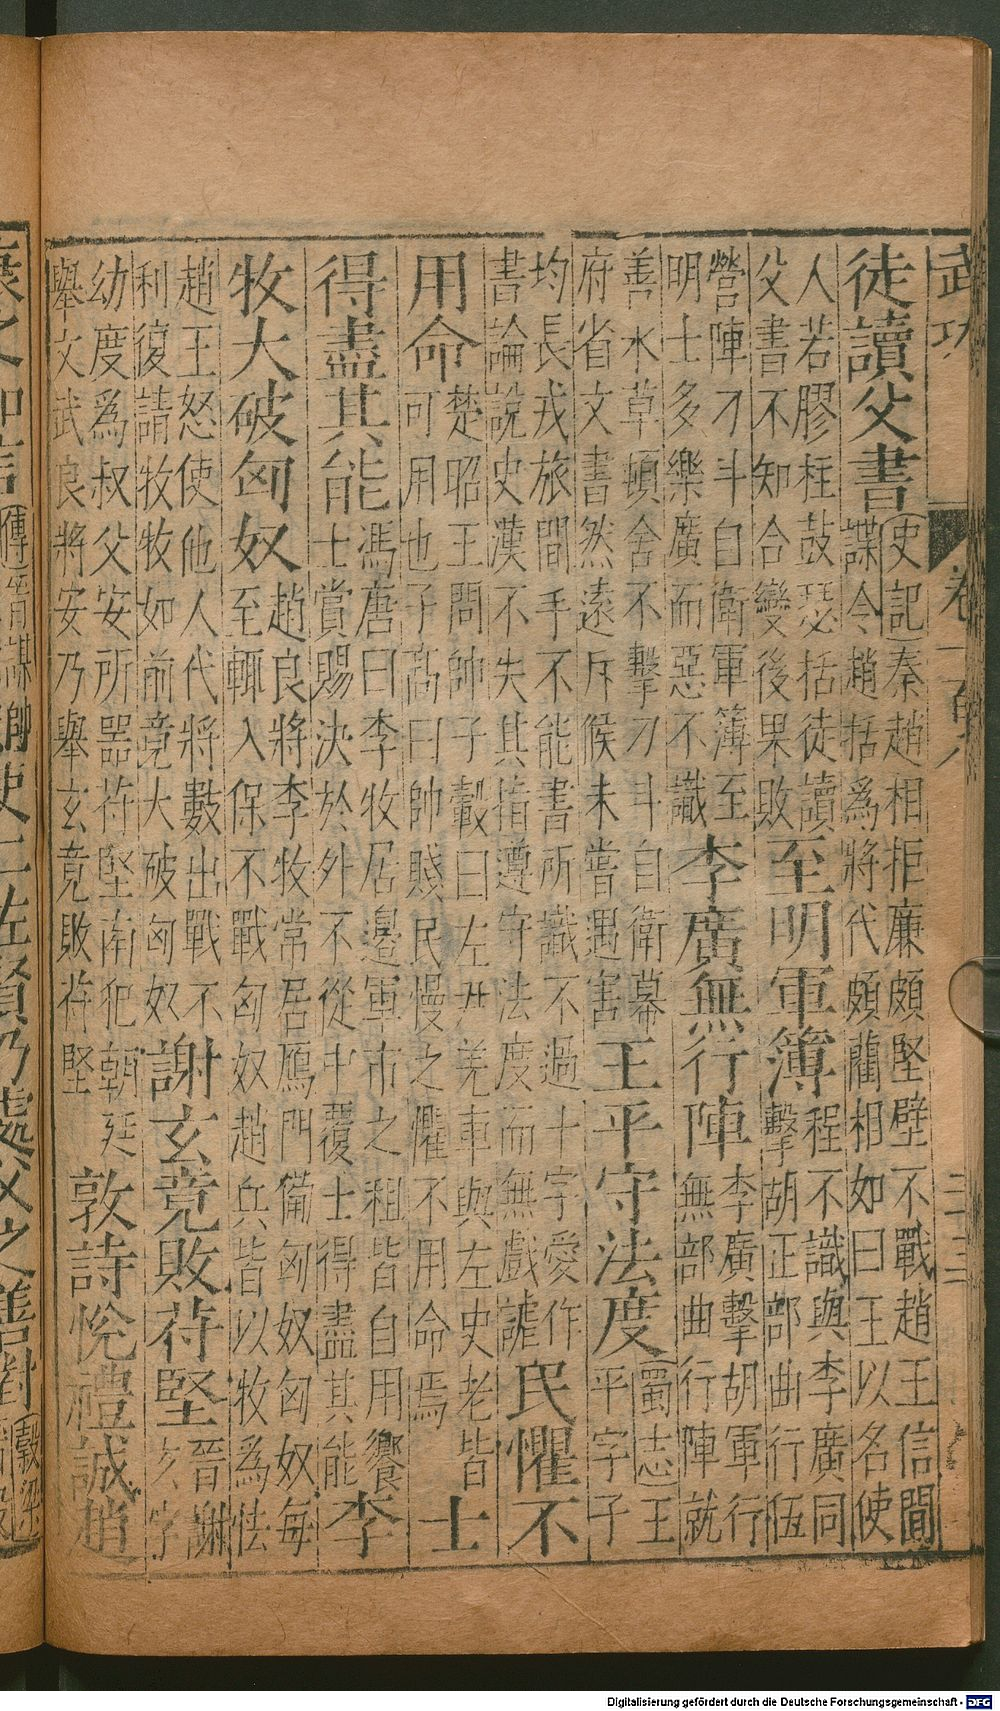 武功 卷一百八 三十三
徒讀父書
(史記)秦趙相拒廉頗堅壁不戰趙王信間
諜令趙括爲將代頗藺相如曰王以名使
人若膠柱鼓瑟括徒讀
父書不知合變後果敗
至明軍簿
程不識與李廣同
擊胡正部曲行伍
營陣刁斗自衛軍簿至
明士多樂廣而惡不識
李廣無行陣
李廣擊胡軍行
無部曲行陣就
善水草頓舍不擊刁斗自衛幕
府省文書然遠斥候未嘗遇害
王平守法度
(蜀志)王
平字子
均長戎旅間手不能書所識不過十字愛作
書論說史漢不失其指遵守法度而無戲謔
民懼不
用命
楚昭王問帥子轂曰左尹羌車與左史老皆
可用也子高曰帥賤民慢之懼不用命焉
士
得盡其能
馮唐曰李牧居邊軍市之租皆自用饗
士賞賜決於外不從中覆士得盡其能
李
牧大破匈奴
趙良將李牧常居鴈門備匈奴匈奴每
至輒入保不戰匈奴趙兵皆以牧爲怯
趙王怒使他人代將數出戰不
利復請牧牧如前竟大破匈奴
謝玄竟敗苻堅
晉謝
玄字
幼度爲叔父安所器苻堅南犯朝廷
舉文武良將安乃舉玄竟敗苻堅
敦詩悅禮誠趙
Digitalisierung gefördert durch die Deutsche Forschungsgemeinschaft - DFG